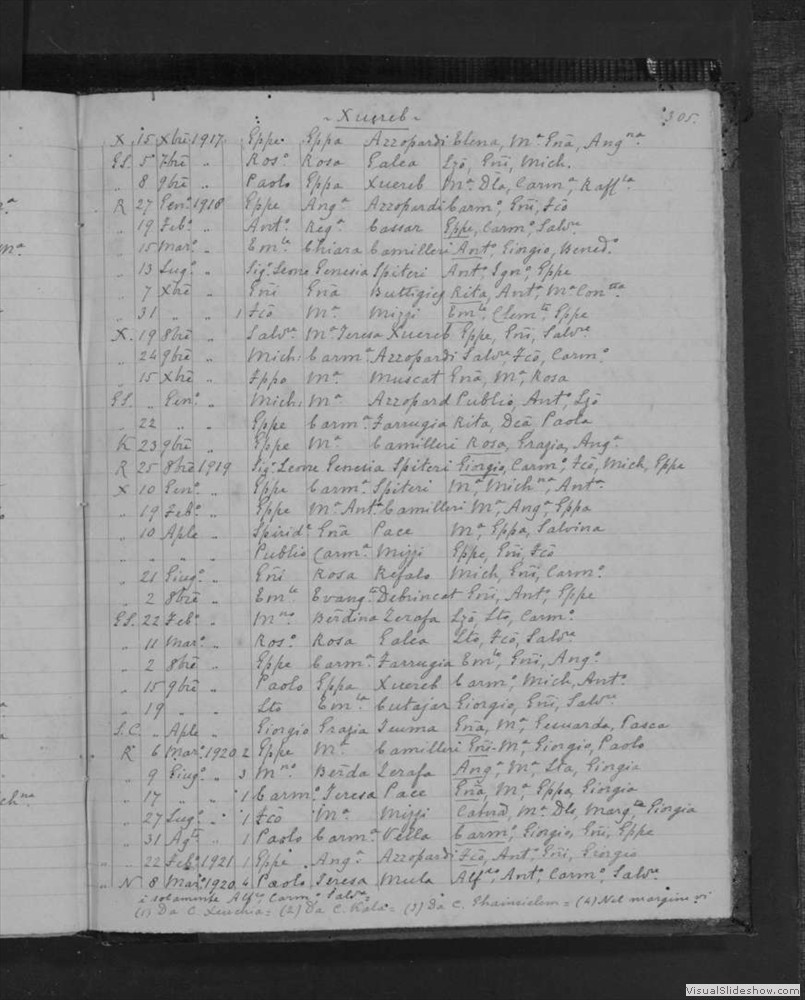 ~ Xuereb ~ 305.
X 15 Xbre 1917 Gppe Gppa Azzopardi Elena, Mª Gnã, Angna
GS. 5 7bre " Rosº Rosa Galea Lzõ, Gni, Mich.
" 8 9bre " Paolo Gppa Xuereb Mª Dla, Carmª, Raffla
R 27 Genº 1918 Gppe Angª Azzopardi Carmº, Gni, Fcõ
" 19 Febº " Antº Regª Cassar Gppe, Carmº, Salvre
" 15 Marº " Emle Chiara Camilleri Antº, Giorgio, Benedº
" 13 Lugº " Sigº Leone Genesia Spiteri Antº, Ignº, Gppe
" 7 Xbre " Gni Gnã Buttigieg Rita, Antª, Mª Contta
" 31 " " 1 Fcõ Mª Mizzi Emle, Clemte, Gppe
X. 19 8bre " Salvre Mª Teresa Xuereb Gppe, Gni, Salvre
" 24 9bre " Mich: Carmª Azzopardi Salvre, Fcõ, Carmº
" 15 Xbre " Fppo Mª Muscat Gnã, Mª, Rosa
GS. " Genº " Mich: Mª Azzopard Publio, Antº, Lzõ
" 22 " " Gppe Carmª Farrugia Rita, Dcã, Paola
K 23 9bre " Gppe Mª Camilleri Rosa, Grazia, Angª
R 25 8bre 1919 Sigº Leone Genesia Spiteri Giorgio, Carmº, Fcõ, Mich, Gppe
X 10 Genº " Gppe Carmª Spiteri Mª, Michna, Antª
" 19 Febº " Gppe Mª Antª Camilleri Mª, Angª, Gppa
" 10 Aple " Spiridº Gnã Pace Mª, Gppa, Salvina
" " " " Publio Carmª Mizzi Gppe, Gni, Fcõ
" 21 Giugº " Gni Rosa Refalo Mich, Gni, Carmº
" 2 8bre " Emle Evangta Debrincat Gni, Antº, Gppe
GS. 22 Febº " Mno Berdina Zerafa Lzõ, Sto, Carmº
" 11 Marº " Rosº Rosa Galea Sto, Fcõ, Salvre
" 2 8bre " Gppe Carmª Farrugia Emle, Gni, Angº
" 15 9bre " Paolo Gppa Xuereb Carmº, Mich, Antº
" 19 " " Sto Emla Cutajar Giorgio, Gni, Salvre
S.C. " Aple " Giorgio Grazia Teuma Gnã, Mª, Genuarda, Pasca
R 6 Marº 1920 2 Gppe Mª Camilleri Gni-Mª, Giorgio, Paolo
" 9 Giugº " 3 Mno Berda Zerafa Angª, Mª, Sta, Giorgia
" 17 " " 1 Carmº Teresa Pace Gnã, Mª, Gppa, Giorgia
" 27 Lugº " 1 Fcõ Mª Mizzi Caterª, Mª Dls, Margta, Giorgia
" 31 Agto " 1 Paolo Carmª Vella Carmº, Giorgio, Gni, Gppe
" 22 Febº 1921 1 Gppe Angª Azzopardi Fcõ, Antº, Gni, Giorgio
" N 8 Marº 1920 4 Paolo Teresa Mula Alfso, Antº, Carmº, Salvre
è solamente Alfso, Carmº, Salvre =
(1) Da C. Xeuchia = (2) Da C. Kala = (3) Da C. Ghainsielem = (4) Nel margine vi
VisualSlideshow.com